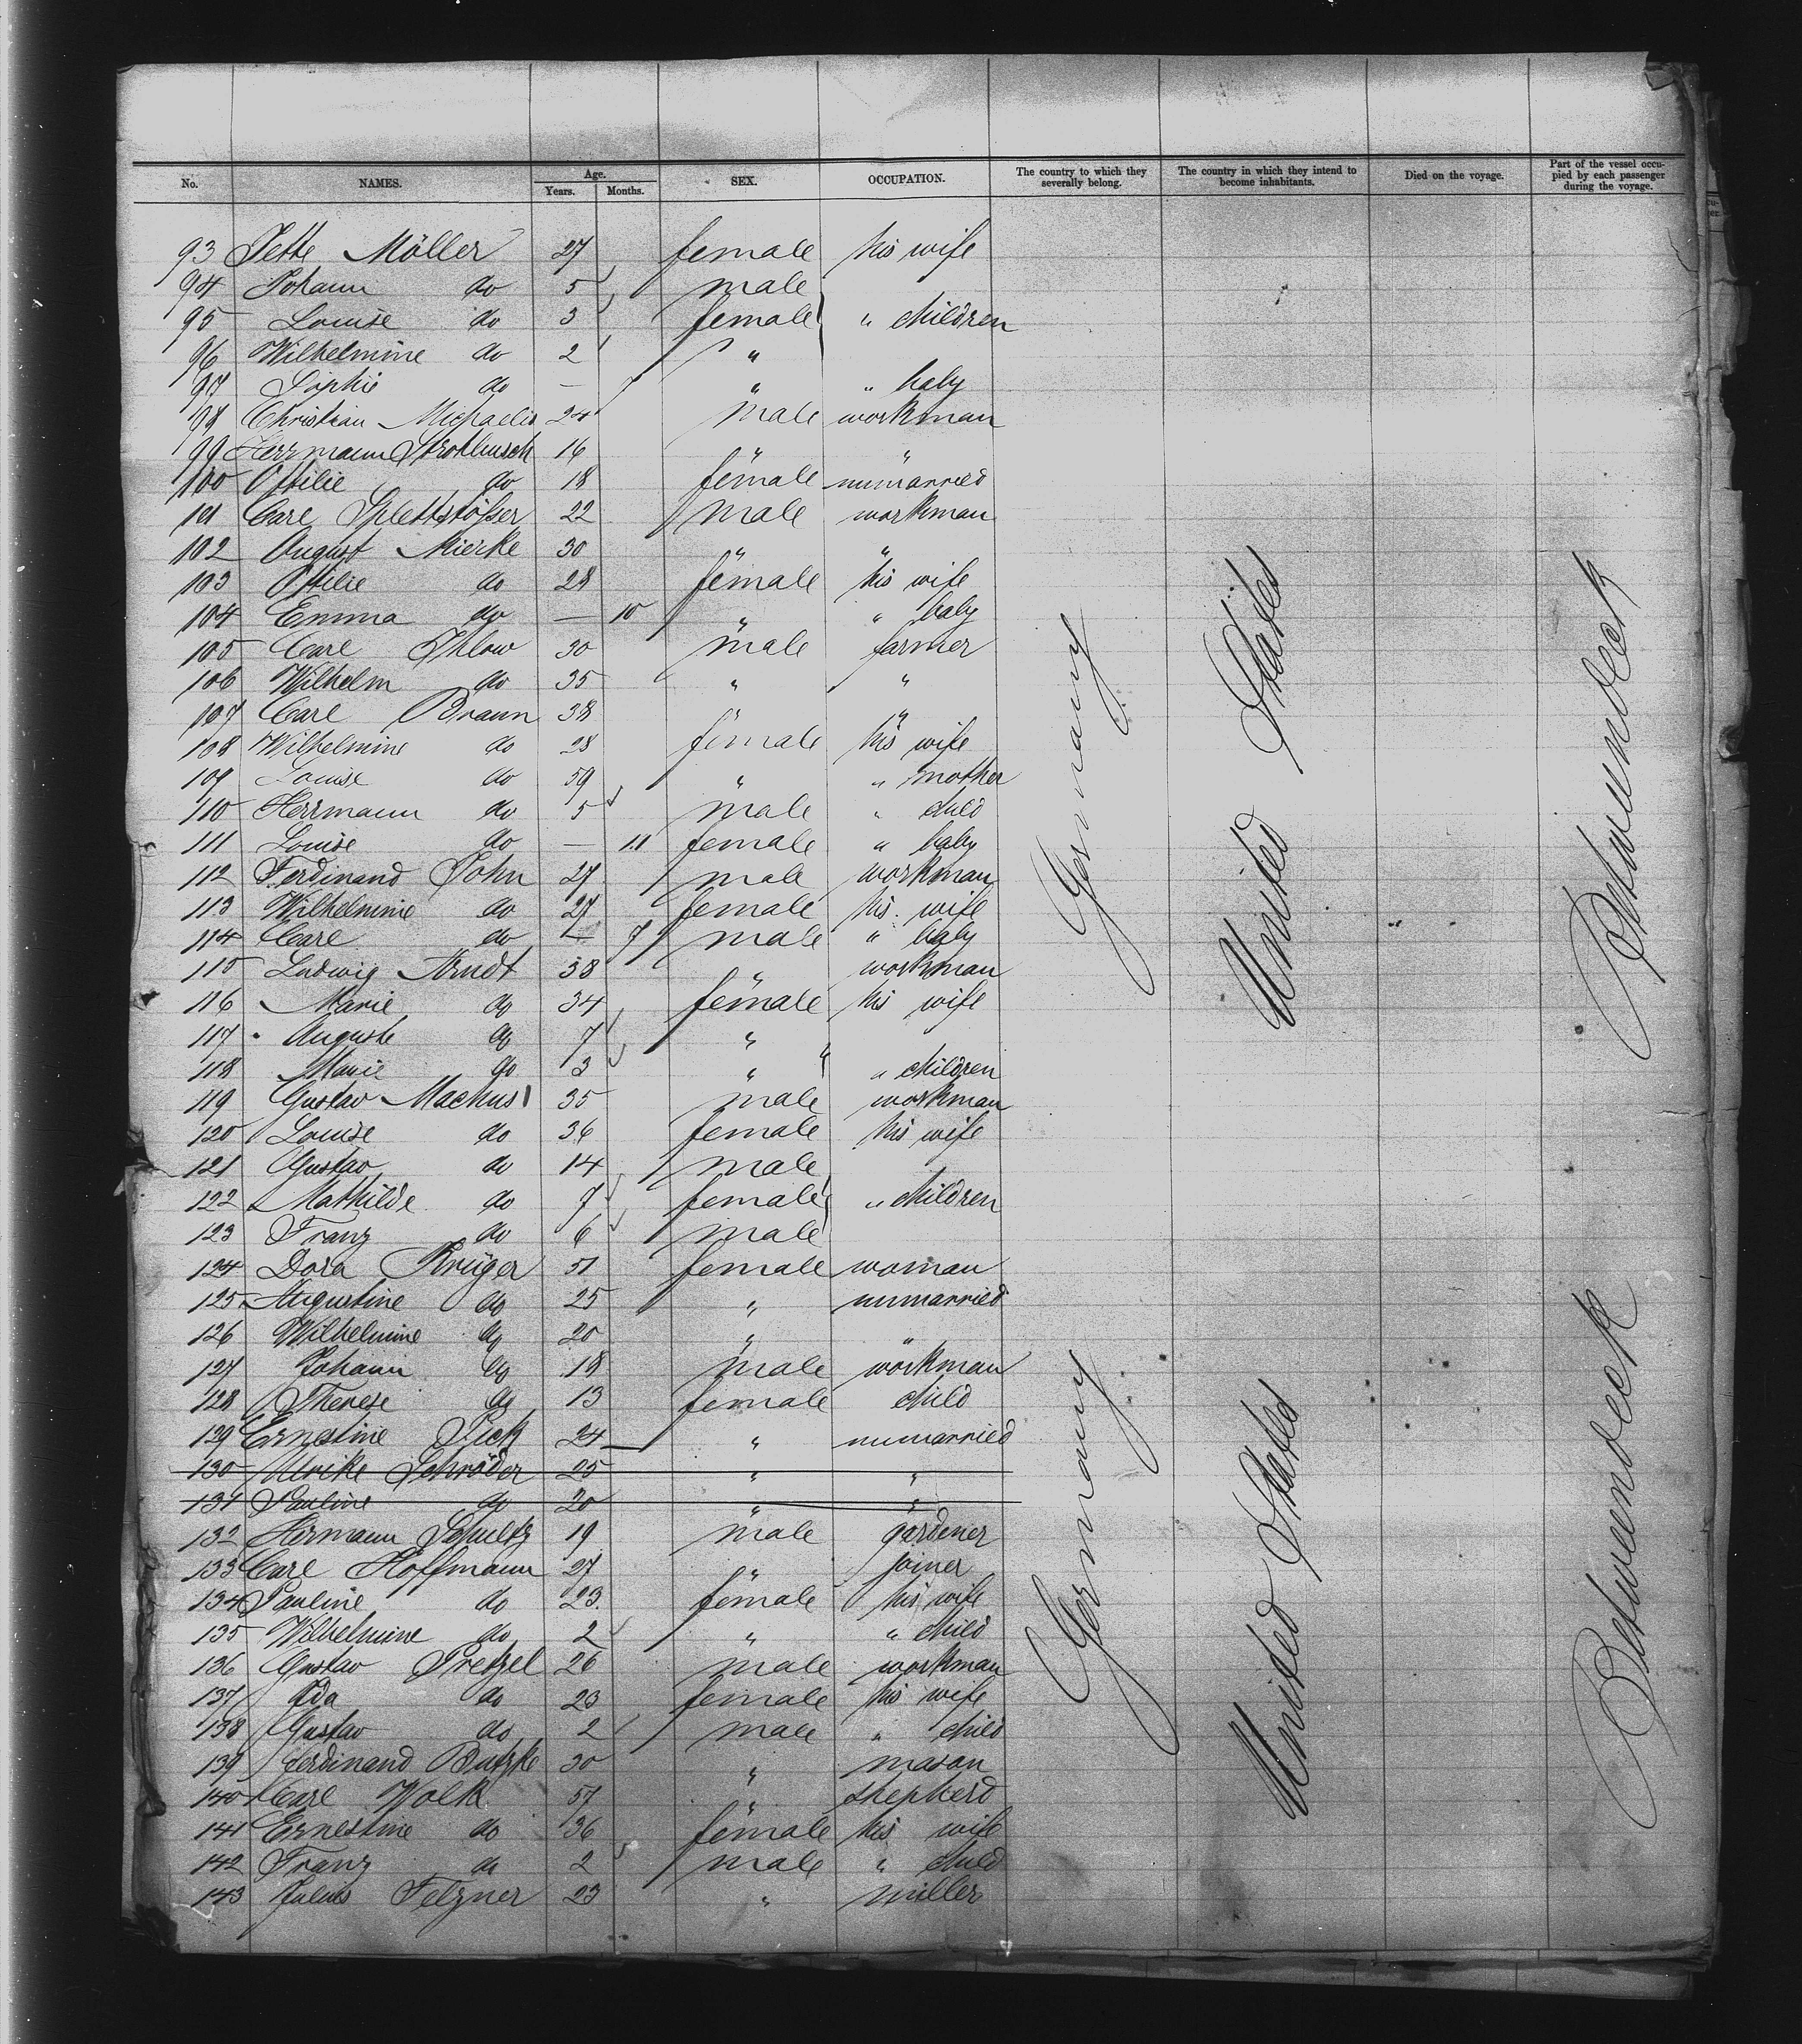 No. NAMES. Age. Years. Months. SEX. OCCUPATION. The country to which they severally belong. The country in which they intend to become inhabitants. Died on the voyage. Part of the vessel occupied by each passenger during the voyage.
93 Jette Möller 27 female his wife
94 Johann do 5 male
95 Louise do 3 female " children
96 Wilhelmine do 2 "
97 Sophie do — 7 " " baby
98 Christian Michaelis 24 male workman
99 Herrmann Strohbusch 16 " "
100 Ottilie do 18 female unmarried
101 Carl Splettstößer 22 male workman
102 August Mierke 30 " "
103 Ottilie do 28 female his wife
104 Emma do — 10 " " baby
105 Carl Ihlow 30 male farmer
106 Wilhelm do 35 " "
107 Carl Braun 38 " "
108 Wilhelmine do 28 female his wife
109 Louise do 59 " " mother
110 Herrmann do 5 male " child
111 Louise do — 11 female " baby
112 Ferdinand John 27 male workman
113 Wilhelmine do 27 female his wife
114 Carl do — 7 male " baby
115 Ludwig Arndt 38 " workman
116 Marie do 34 female his wife
117 Auguste do 7 "
118 Marie do 3 " " children
119 Gustav Machus 35 male workman
120 Louise do 36 female his wife
121 Gustav do 14 male
122 Mathilde do 7 female " children
123 Franz do 6 male
124 Dora Krüger 51 female woman
125 Augustine do 25 " unmarried
126 Wilhelmine do 20 " "
127 Johann do 18 male workman
128 Therese do 13 female child
129 Ernestine Pick 24 " unmarried
130 Ulrike Schröder 25 " "
131 Pauline do 20 " "
132 Hermann Schultz 19 male gardener
133 Carl Hoffmann 27 " joiner
134 Pauline do 23 female his wife
135 Wilhelmine do 2 " " child
136 Gustav Pretzel 26 male workman
137 Ida do 23 female his wife
138 Gustav do 2 male " child
139 Ferdinand Butzke 30 " mason
140 Carl Wolk 57 " shepherd
141 Ernestine do 36 female his wife
142 Franz do 2 male " child
143 Julius Felzner 23 " miller
Germany United States Betweendeck
Germany United States Betweendeck